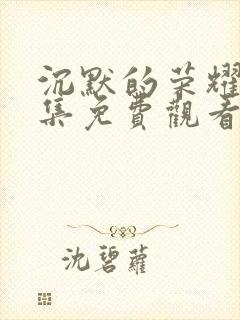 沉默的荣耀
集免費觀看
沈碧蘿